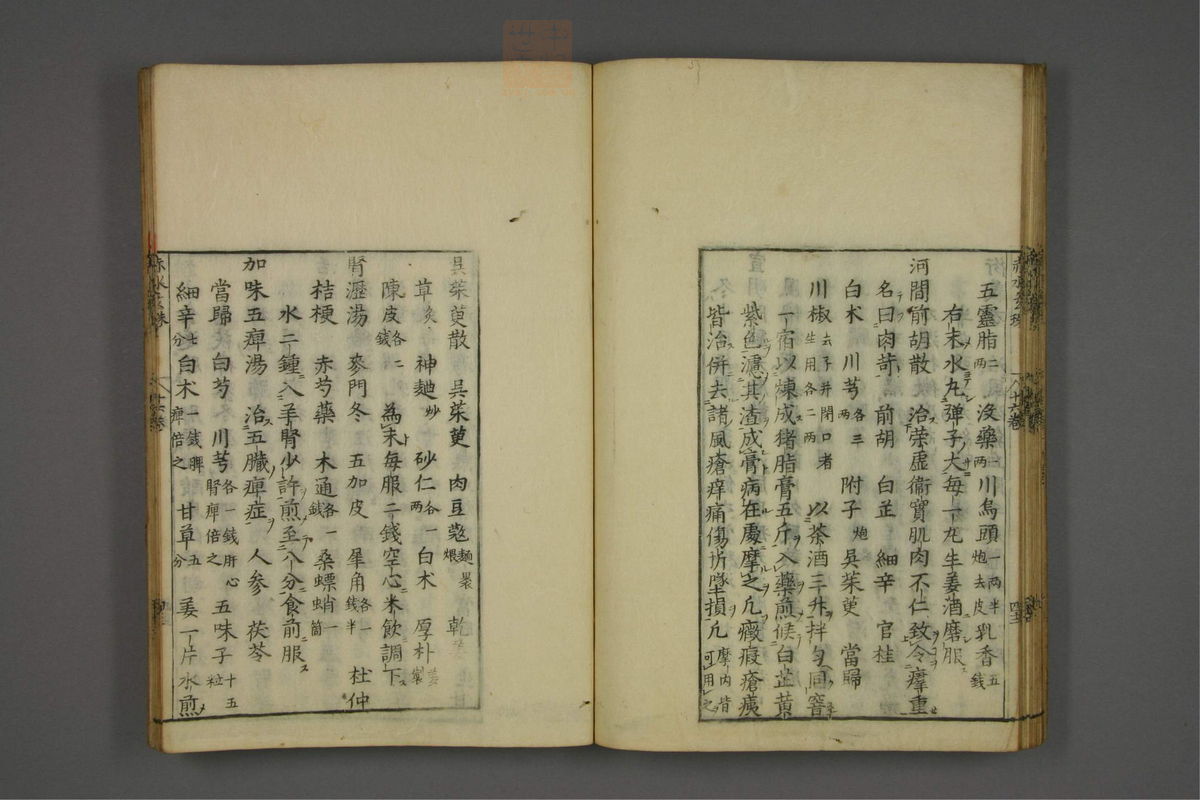 五靈脂二兩 沒藥一兩 川烏頭一兩半炮去皮 乳香五錢
右末水丸彈子大每一丸生姜酒磨服
河間前胡散 治荣虚衞實肌肉不仁致令𤸷重
名曰肉苛 前胡 白芷 細辛 官桂
白术 川芎各三兩 附子炮 吳茱萸 當歸
川椒去子并閉口者生用各二兩 以茶酒三升拌匀同窨
一宿以煉成猪脂膏五斤入藥煎候白芷黄
紫色濾其渣成膏病在處摩之凡癥瘕瘡痍
皆治併去諸風瘡痒痛傷折墜損凡摩内皆可用之
吳茱萸散 吳茱萸 肉豆蔻麵裹煨 乾
草炙 神麯炒 砂仁各一兩 白术 厚朴姜製
陳皮各二錢 為末每服二錢空心米飲調下
腎瀝湯 麥門冬 五加皮 犀角各一錢半 杜仲
桔梗 赤芍藥 木通各一錢 桑螵蛸一箇
水二鍾入羊腎少許煎至八分食前服
加味五痺湯 治五臟痺症 人參 茯苓
當歸 白芍 川芎各一錢肝心腎痺倍之 五味子十五粒
細辛七分 白术一錢脾痺倍之 甘草五分 姜一片水煎